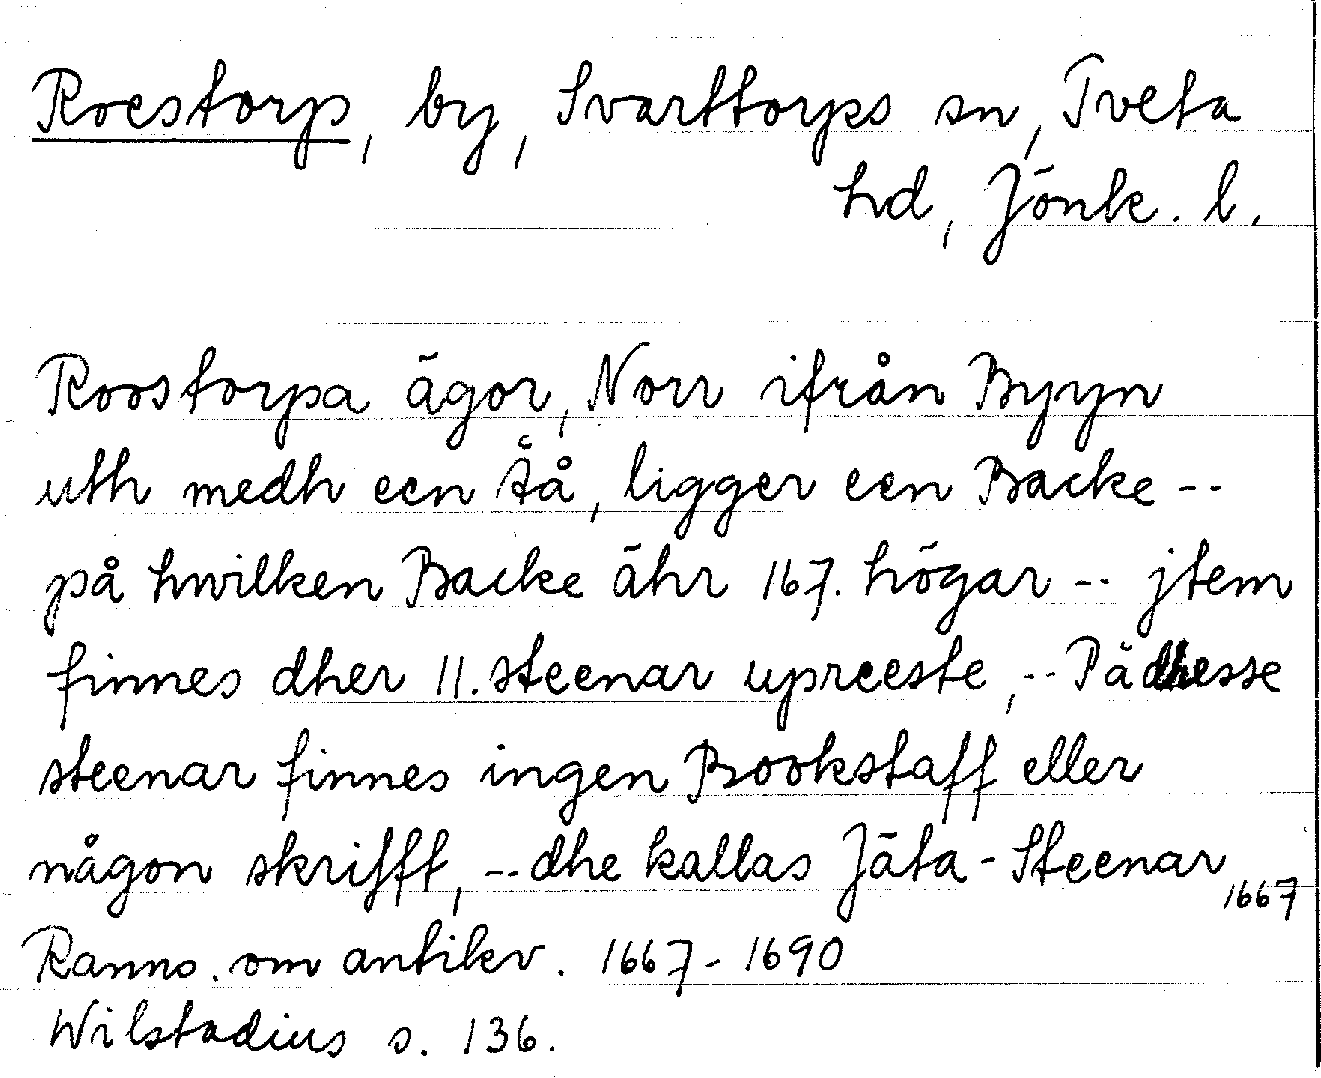 Roestorp, by, Svarttorps sn, Tveta
hd, Jönk. l.
Roostorpa ägor, Norr ifrån Byyn
uth medh een Åå, ligger een Backe --
på hwilken Backe ähr 167. högar -- jtem
finnes dher 11. steenar upreeste, -- På dhesse
steenar finnes ingen Bookstaff eller
någon skrifft, -- dhe kallas Jäta-Steenar
1667
Ranns. om antikv. 1667-1690
Wilstadius s. 136.